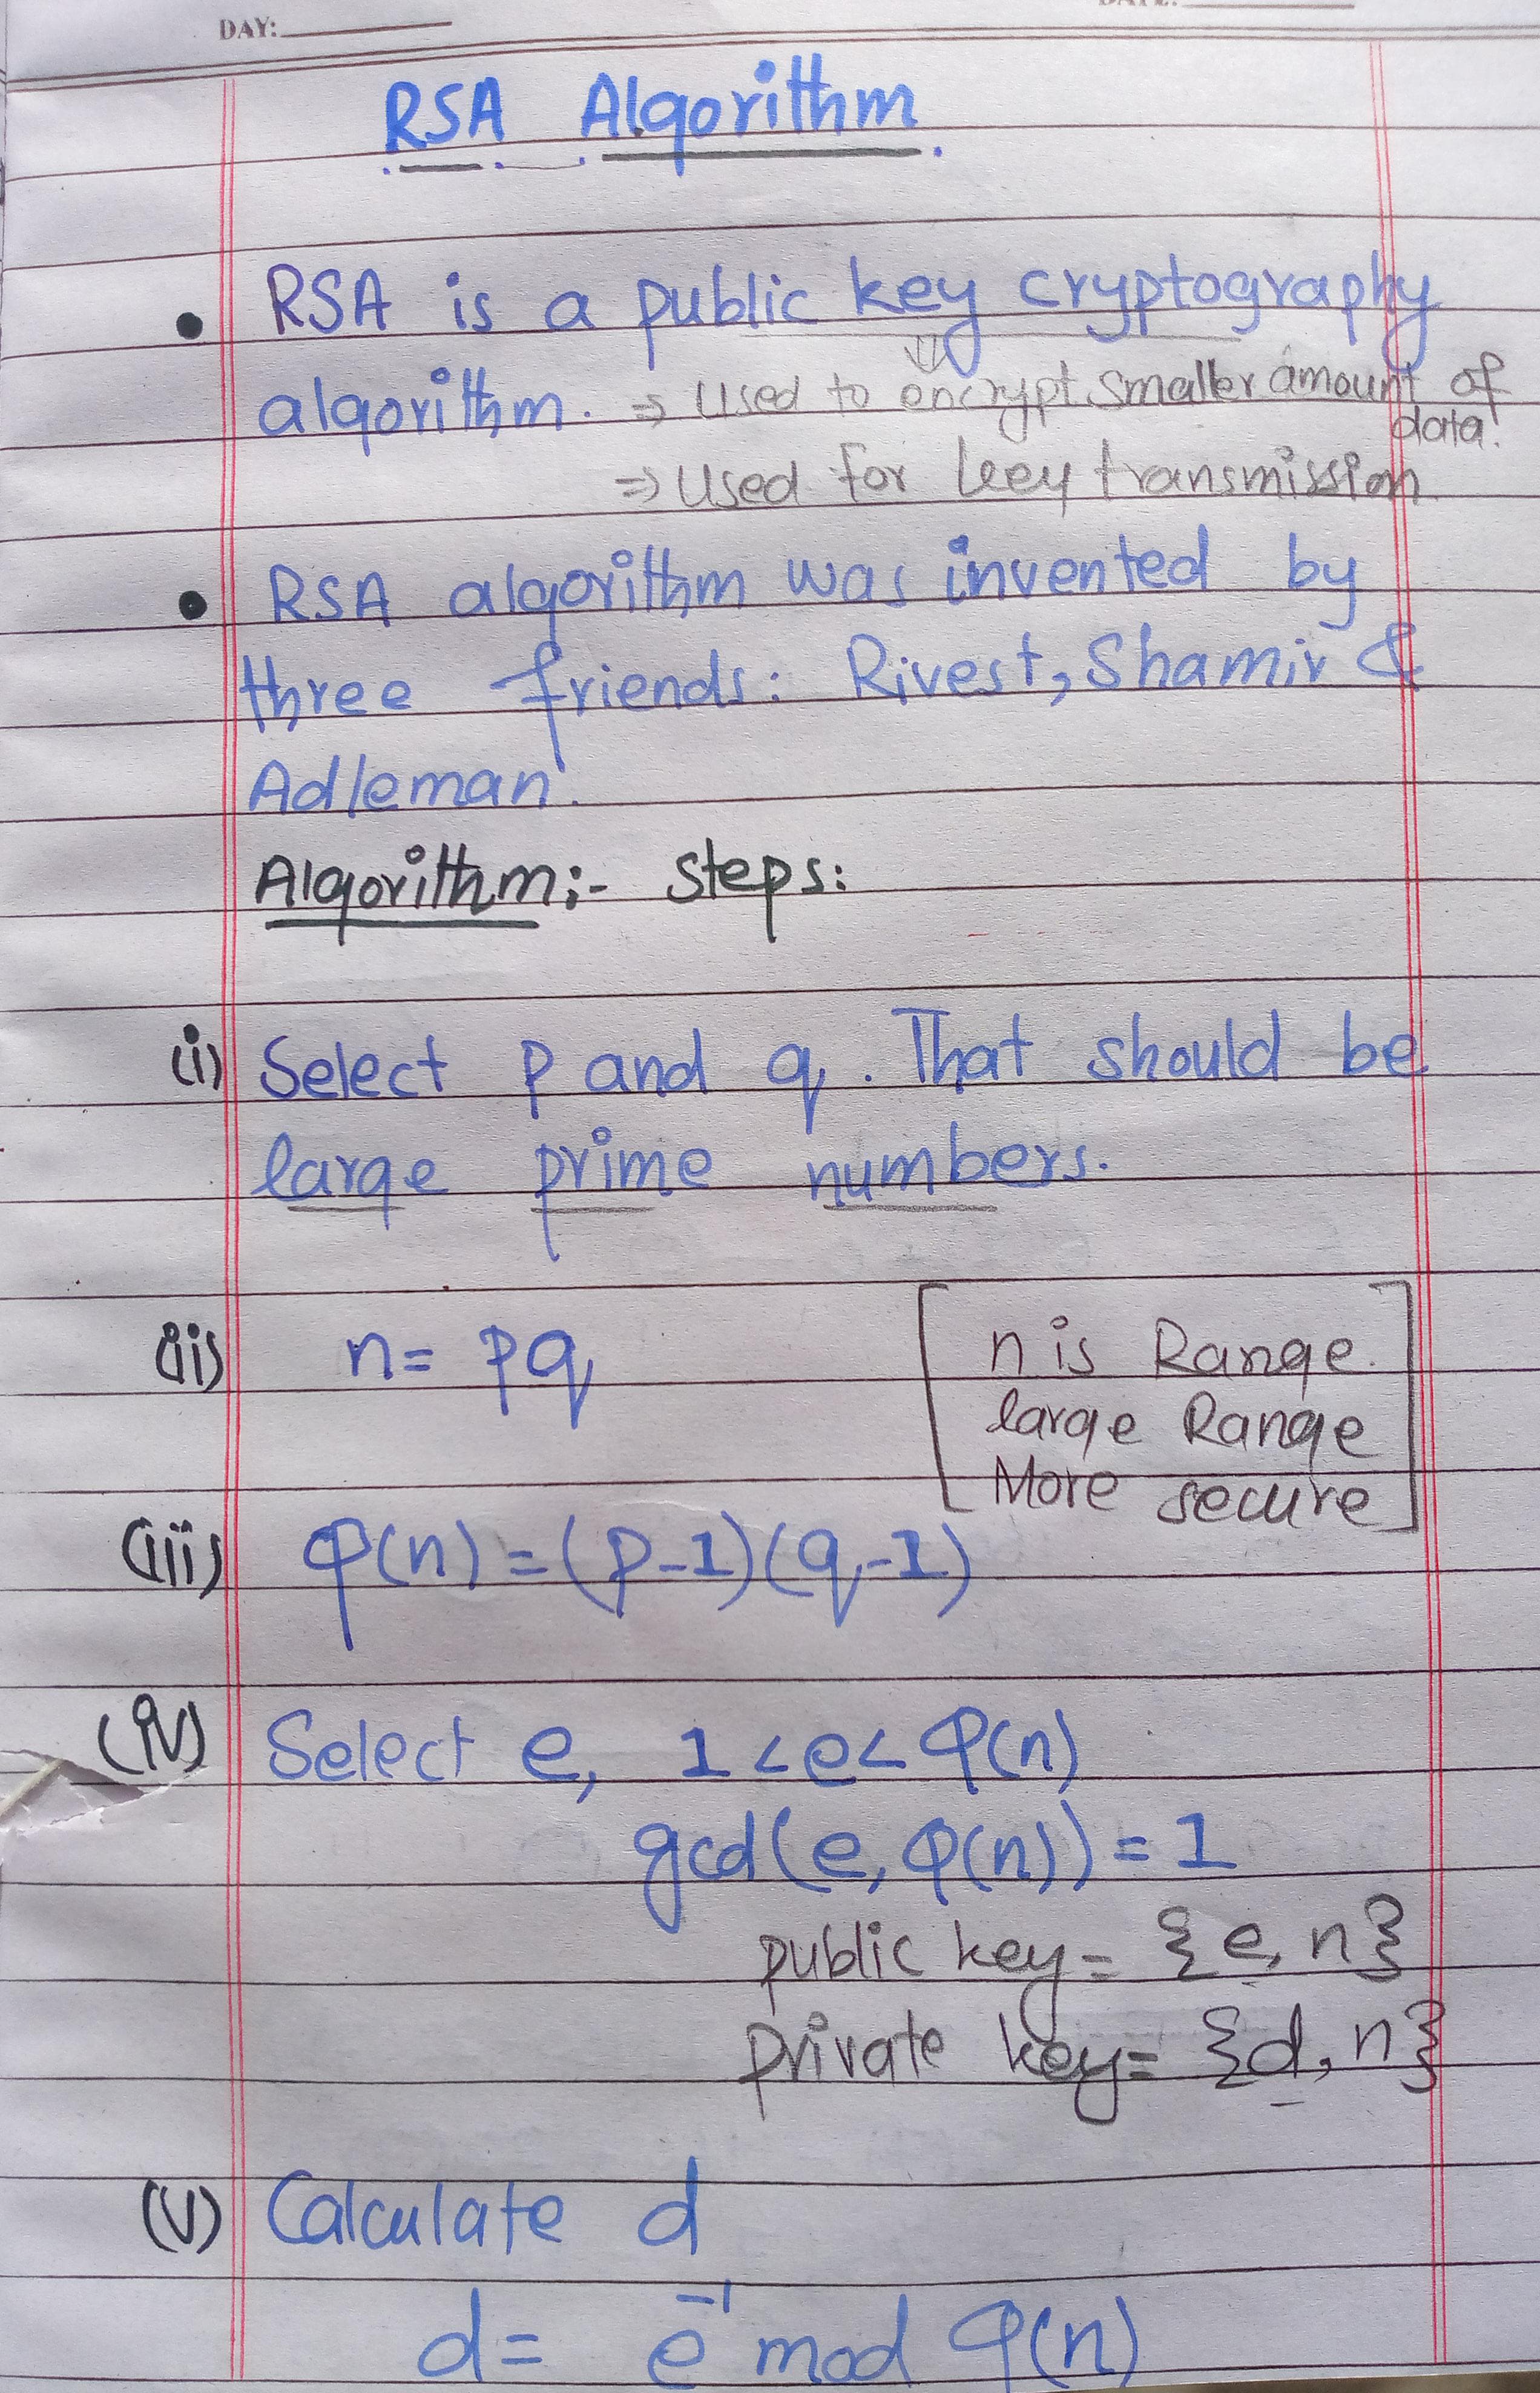 DAY:
DATE:
RSA Algorithm
• RSA is a public key cryptography
algorithm. ⇒ Used to encrypt smaller amount of
data.
⇒ Used for key transmission
• RSA algorithm was invented by
three friends: Rivest, Shamir &
Adleman.
Algorithm:- Steps:
(i) Select p and q. That should be
large prime numbers.
(ii) n= pq
[n is Range.
large Range
More secure]
(iii) φ(n) = (p-1)(q-1)
(iv) Select e, 1<e<φ(n)
gcd(e, φ(n)) = 1
public key= {e, n}
private key= {d, n}
(v) Calculate d
d= e⁻¹ mod φ(n)